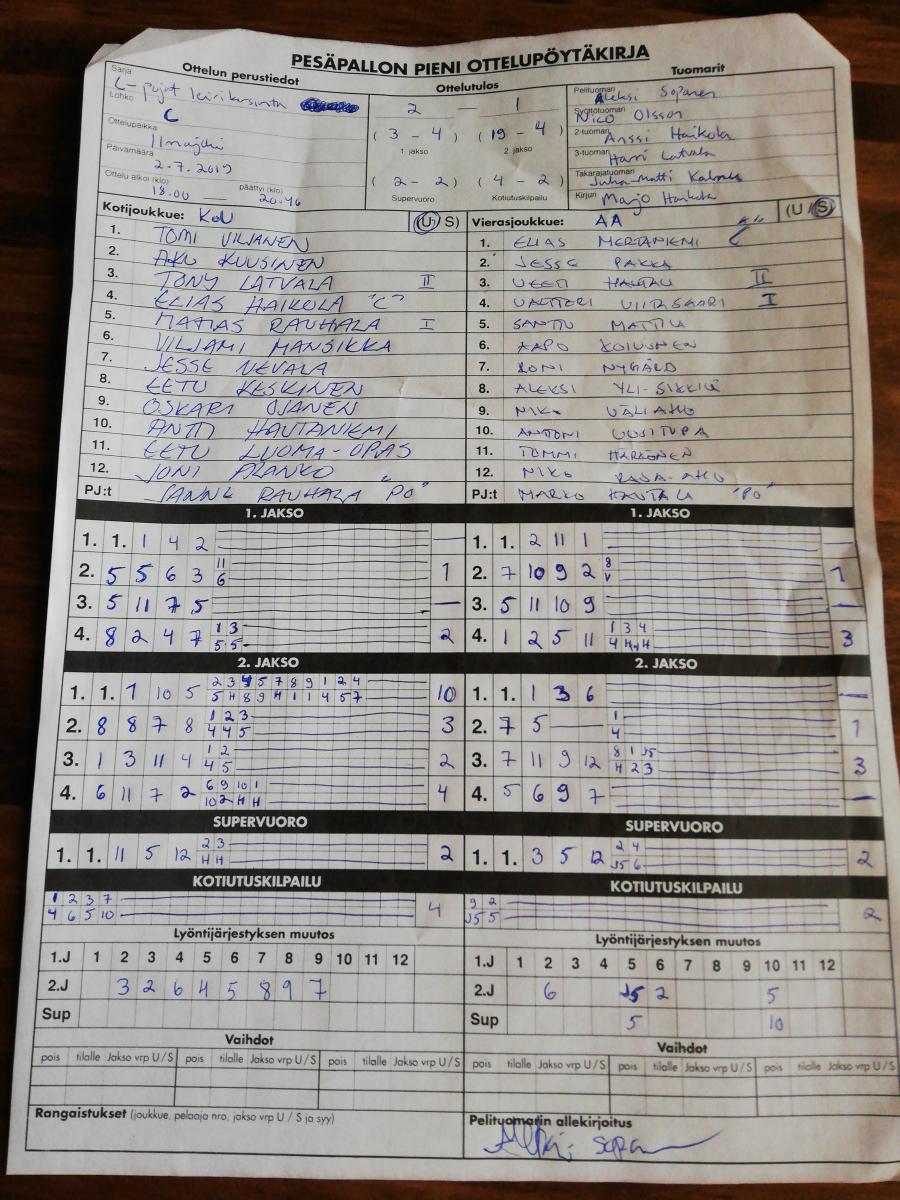 PESÄPALLON PIENI OTTELUPÖYTÄKIRJA
Ottelun perustiedot Ottelutulos Tuomarit
Sarja C-pojat leirikarsinta
Lohko C
Ottelupaikka Ilmajoki
Päivämäärä 2.7.2019
Ottelu alkoi (klo) 18.00 päättyi (klo) 20.46
2 — 1
( 3 - 4 ) ( 19 - 4 )
1 jakso 2. jakso
( 2 - 2 ) ( 4 - 2 )
Supervuoro Kotiutuskilpailu
Pelituomari Aleksi Sopanen
Syöttötuomari Nico Olsson
2-tuomari Anssi Haikola
3-tuomari Harri Latvala
Takarajatuomari Juha-Matti
Kirjuri Marjo Haikola
Kotijoukkue: KoU (U/ S)
1. TOMI VILJANEN
2. AKU KUUSINEN
3. TONY LATVALA II
4. ELIAS HAIKOLA "C"
5. MATIAS RAUHALA I
6. VILJAMI MANSIKKA
7. JESSE NEVALA
8. EETU KESKINEN
9. OSKARI OJANEN
10. ANTTI HAUTANIEMI
11. EETU LUOMA-OPAS
12. JONI ALANKO
PJ:t JANNE RAUHALA "PO"
Vierasjoukkue: AA (U / S)
1. ELIAS MERTANIEMI C
2. JESSE PAKKA
3. VEETI HAUTALA II
4. VALTTERI VIITASAARI I
5. SANTTU MATTILA
6. AAPO KOIVUNEN
7. RONI NYGÅRD
8. ALEKSI YLI-SIKKILÄ
9. NIKO VÄLIAHO
10. ANTONI UUSITUPA
11. TOMMI HARKÖNEN
12. NIKO RAJA-AHO
PJ:t MARKO HAUTALA "PO"
1. JAKSO
1. 1. 1 4 2 —
2. 5 5 6 3 11 1
6
3. 5 11 7 5 —
4. 8 2 4 7 1 3 2
5 5
1. JAKSO
1. 1. 2 11 1 —
2. 7 10 9 2 8 1
V
3. 5 11 10 9 —
4. 1 2 5 11 1 3 4 3
4 H H
2. JAKSO
1. 1. 7 10 5 2 3 4 5 7 8 9 1 2 4 10
5 H 8 9 H 1 1 4 5 7
2. 8 8 7 8 1 2 3 3
4 4 5
3. 1 3 11 4 1 2 2
4 5
4. 6 11 7 2 6 9 10 1 4
10 2 H H
2. JAKSO
1. 1. 1 3 6 —
2. 7 5 — 1 1
4
3. 7 11 9 12 8 1 J5 3
H 2 3
4. 5 6 9 7 —
SUPERVUORO
1. 1. 11 5 12 2 3 2
H H
SUPERVUORO
1. 1. 3 5 12 2 4 2
J5 6
KOTIUTUSKILPAILU
1 2 3 7 4
4 6 5 10
KOTIUTUSKILPAILU
9 2 2
J5 5
Lyöntijärjestyksen muutos
1.J 1 2 3 4 5 6 7 8 9 10 11 12
2.J 3 2 6 4 5 8 9 7
Sup
Lyöntijärjestyksen muutos
1.J 1 2 3 4 5 6 7 8 9 10 11 12
2.J 6 J5 2 5
Sup 5 10
Vaihdot
pois tilalle Jakso vrp U / S pois tilalle Jakso vrp U / S pois tilalle Jakso vrp U / S
Vaihdot
pois tilalle Jakso vrp U / S pois tilalle Jakso vrp U / S pois tilalle Jakso vrp U / S
Rangaistukset (joukkue, pelaaja nro, jakso vrp U / S ja syy)
Pelituomarin allekirjoitus